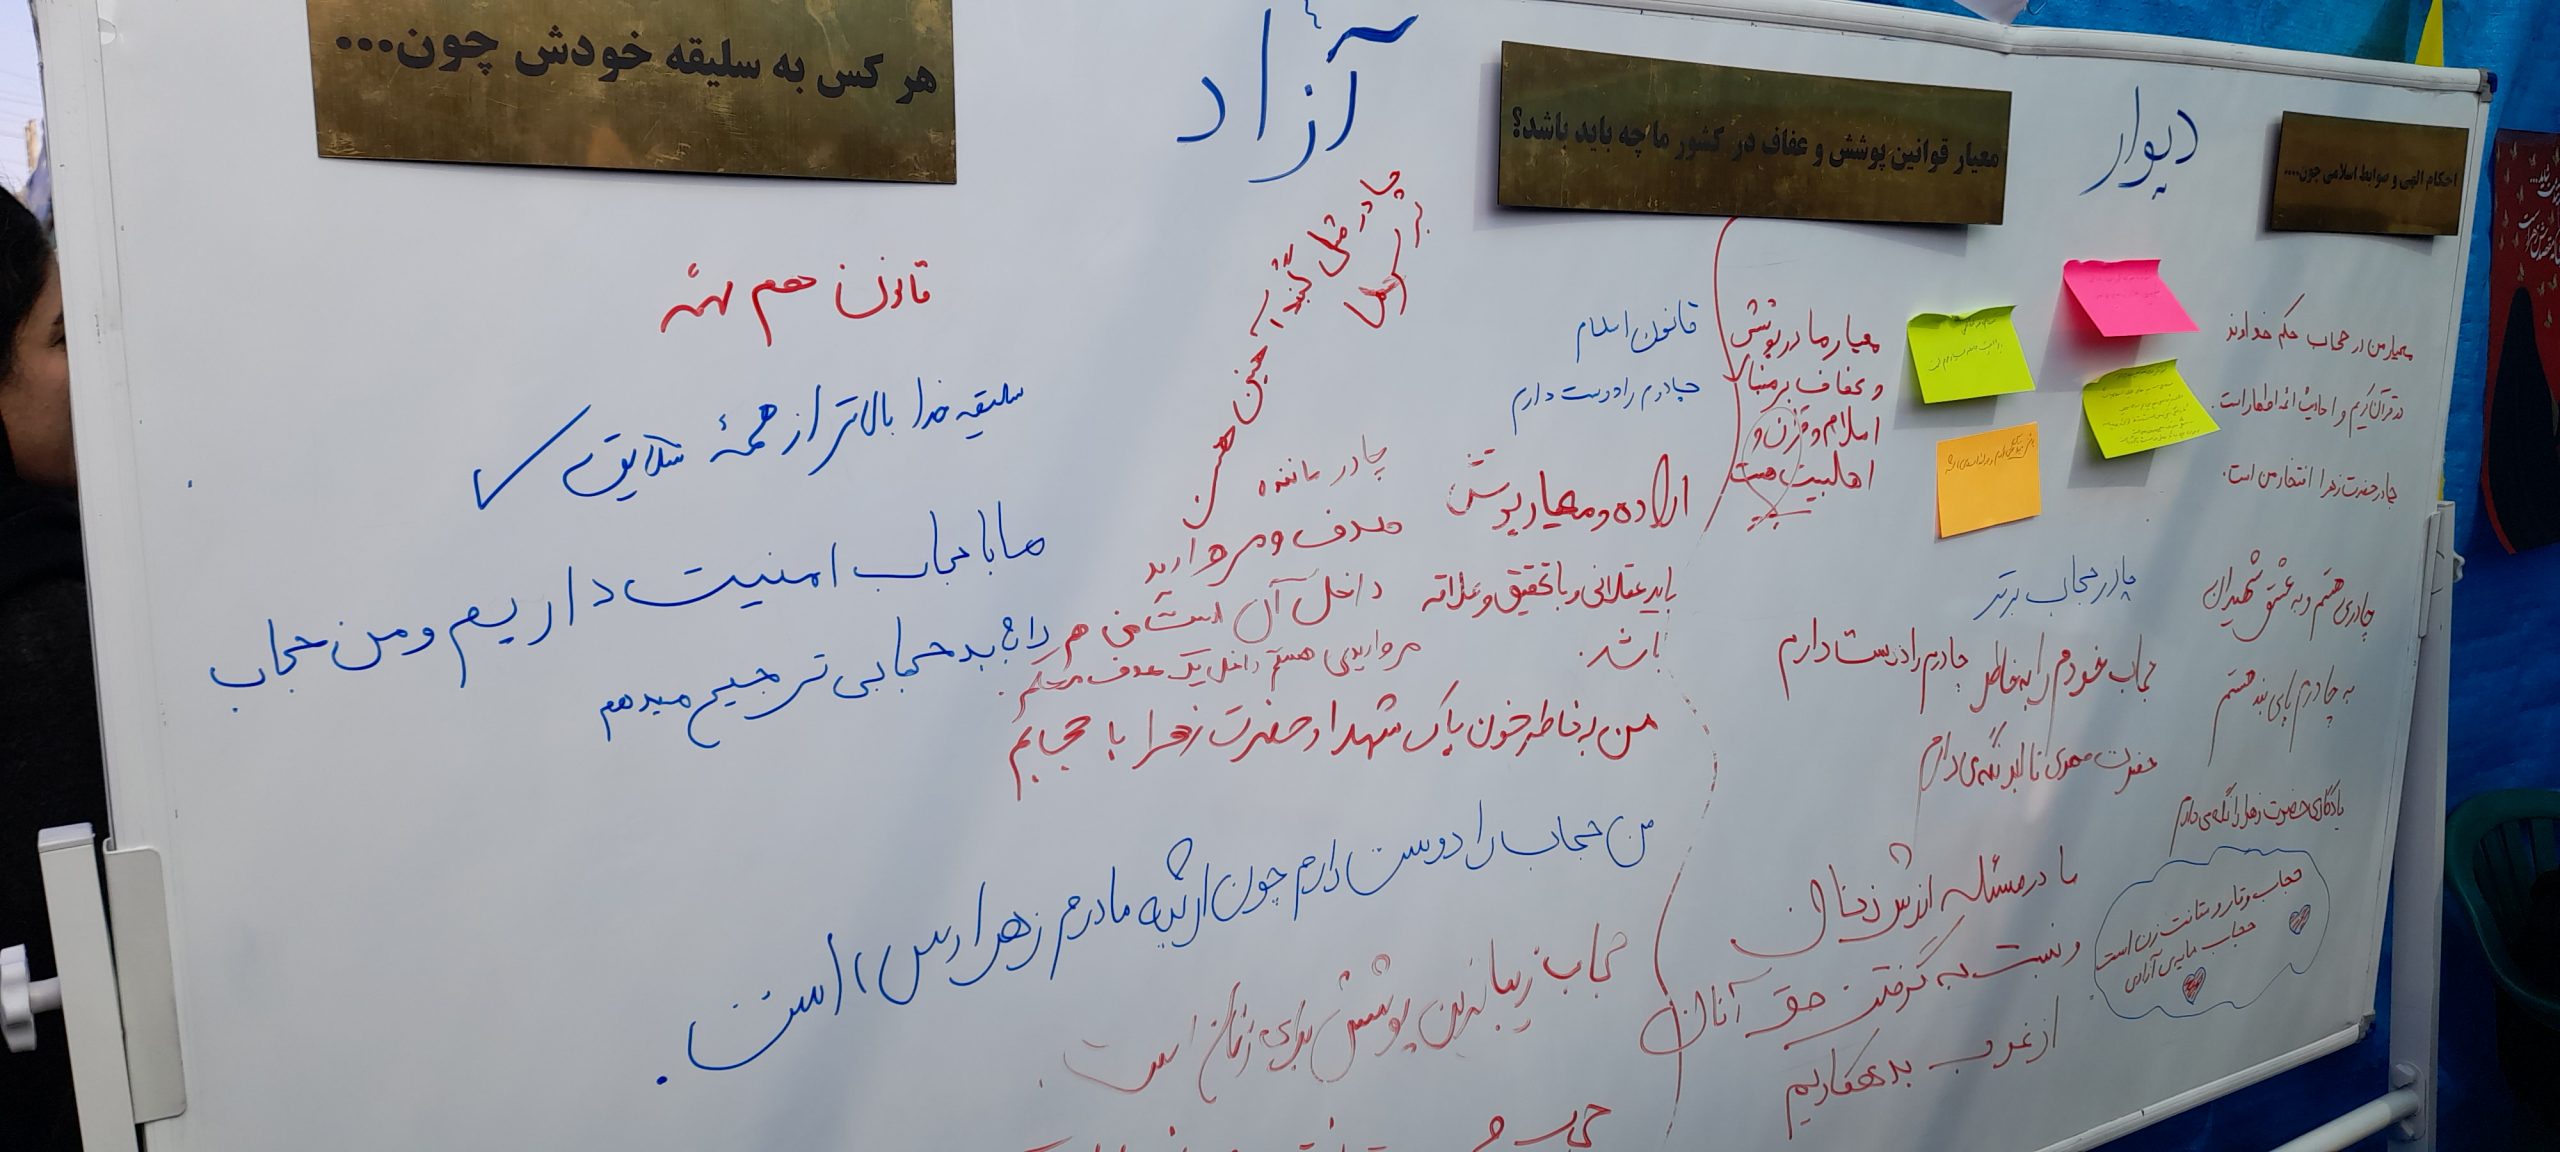 دیوار
آزاد
احکام الهی و ضوابط اسلامی چون....
معیار قوانین پوشش و عفاف در کشور ما چه باید باشد؟
هر کس به سلیقه خودش چون...
معیار من در حجاب حکم خداوند
در قرآن کریم و احادیث ائمه اطهار است.
چادر حضرت زهرا افتخار من است.
چادری هستم و به عشق شهیدان
به چادرم پای بند هستم
یادگاری حضرت زهرا را نگه می دارم
حجاب وقار و متانت زن است
حجاب مایه‌ی آزادی
چادر حجاب برتر
حجاب خودم را به خاطر
چادرم را دوست دارم
حضرت مهدی تا ابد نگه می دارم
ما در مسئله ارزش زنان
و نسبت به گرفتن حق آنان
از غرب بدهکاریم
معیار ما در پوشش
و عفاف بر مبنای
اسلام و قرآن و
اهلبیت هست
قانون اسلام
چادرم را دوست دارم
اراده و معیار پوشش
باید عقلانی و با تحقیق و علاقه
باشد.
چادر مثل گنبد
هست
چادر مانند
صدف و مروارید
داخل آن است من هم
مرواریدی هستم داخل یک صدف محکم.
من به خاطر خون پاک شهدا و حضرت زهرا با حجابم
من حجاب را دوست دارم چون ارثیه مادرم زهرا (س) است.
حجاب زیباترین پوشش برای زنان است.
قانون هم مهمه
سلیقه خدا بالاتر از همهٔ سلایق
ما با حجاب امنیت داریم و من حجاب
را به بد حجابی ترجیح میدهم